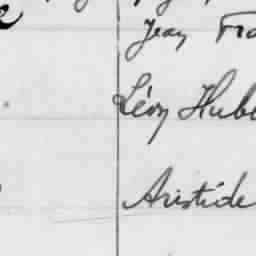 Jean Fra
Léon Hube
Aristide